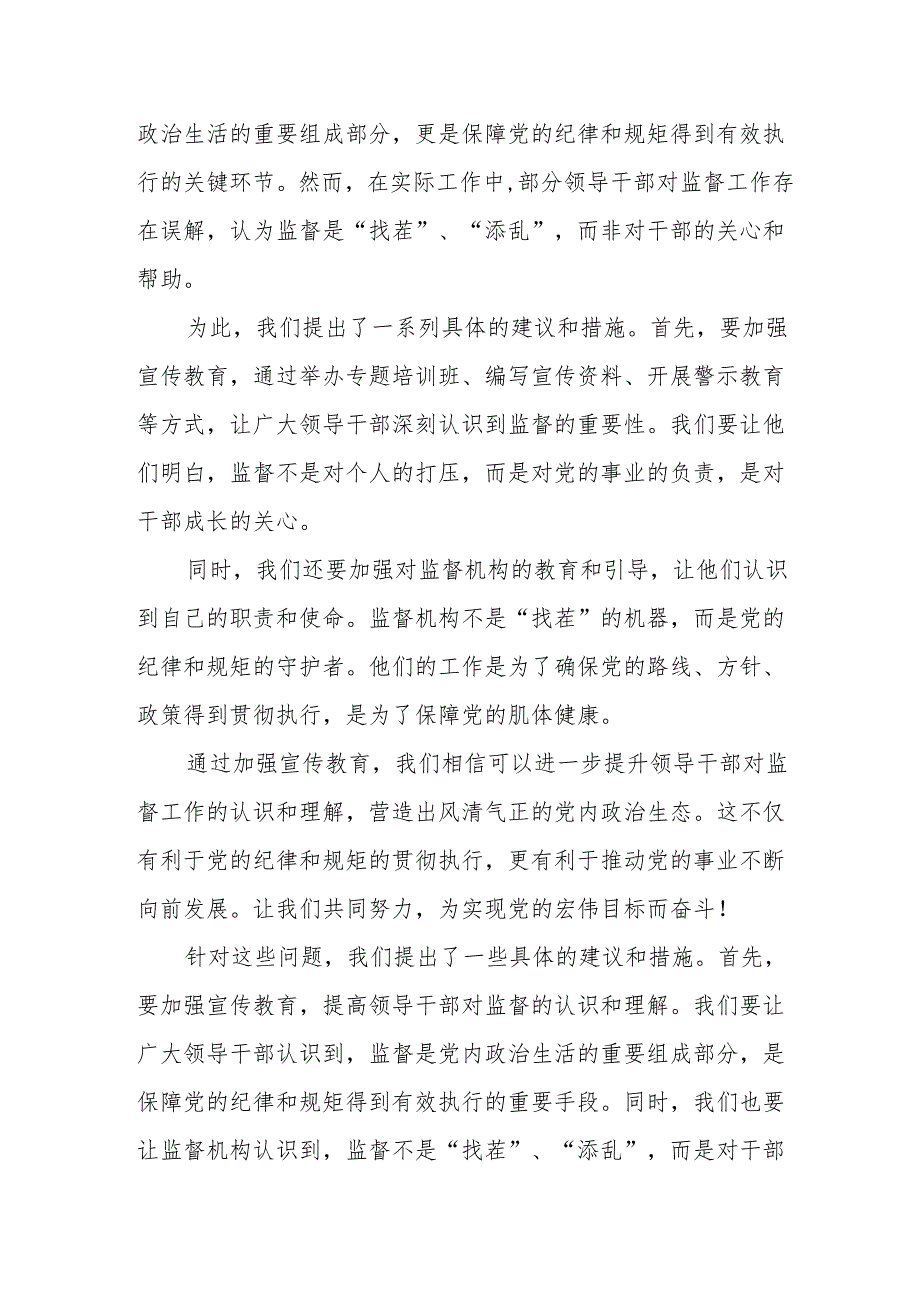 政治生活的重要组成部分，更是保障党的纪律和规矩得到有效执
行的关键环节。然而，在实际工作中,部分领导干部对监督工作存
在误解，认为监督是“找茬”、“添乱”，而非对干部的关心和
帮助。
为此，我们提出了一系列具体的建议和措施。首先，要加强
宣传教育，通过举办专题培训班、编写宣传资料、开展警示教育
等方式，让广大领导干部深刻认识到监督的重要性。我们要让他
们明白，监督不是对个人的打压，而是对党的事业的负责，是对
干部成长的关心。
同时，我们还要加强对监督机构的教育和引导，让他们认识
到自己的职责和使命。监督机构不是“找茬”的机器，而是党的
纪律和规矩的守护者。他们的工作是为了确保党的路线、方针、
政策得到贯彻执行，是为了保障党的肌体健康。
通过加强宣传教育，我们相信可以进一步提升领导干部对监
督工作的认识和理解，营造出风清气正的党内政治生态。这不仅
有利于党的纪律和规矩的贯彻执行，更有利于推动党的事业不断
向前发展。让我们共同努力，为实现党的宏伟目标而奋斗！
针对这些问题，我们提出了一些具体的建议和措施。首先，
要加强宣传教育，提高领导干部对监督的认识和理解。我们要让
广大领导干部认识到，监督是党内政治生活的重要组成部分，是
保障党的纪律和规矩得到有效执行的重要手段。同时，我们也要
让监督机构认识到，监督不是“找茬”、“添乱”，而是对干部